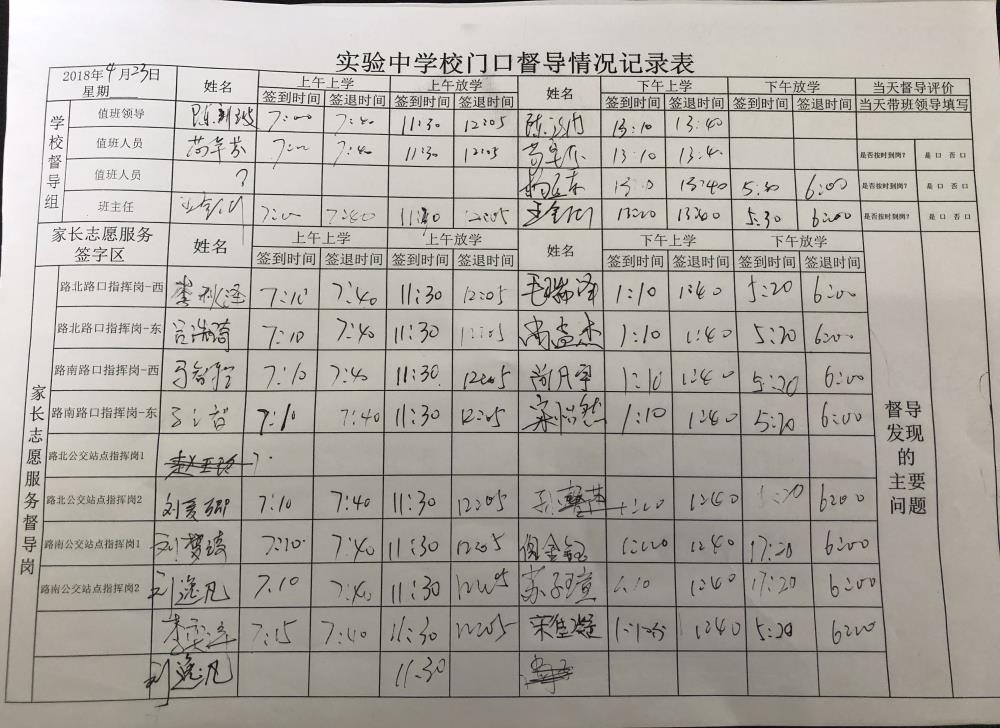 实验中学校门口督导情况记录表
2018年4月23日 姓名 上午上学 上午放学 姓名 下午上学 下午放学 当天督导评价
星期 签到时间 签退时间 签到时间 签退时间 签到时间 签退时间 签到时间 签退时间 当天带班领导填写
学校督导组
值班领导 7:00 7:40 11:30 12:05 13:10 13:40
值班人员 7:00 7:40 11:30 12:05 13:10 13:40 是否按时到岗? 是口 否口
值班人员 ? 13:10 13:40 5:30 6:00 是否按时到岗? 是口 否口
班主任 7:00 7:40 11:30 12:05 13:00 13:40 5:30 6:00 是否按时到岗? 是口 否口
家长志愿服务 姓名 上午上学 上午放学 姓名 下午上学 下午放学
签字区 签到时间 签退时间 签到时间 签退时间 签到时间 签退时间 签到时间 签退时间
家长志愿服务督导岗
路北路口指挥岗-西 7:10 7:40 11:30 12:05 毛瑞泽 1:10 1:40 5:20 6:00
路北路口指挥岗-东 7:10 7:40 11:30 12:05 尚孟杰 1:10 1:40 5:20 6:00
路南路口指挥岗-西 7:10 7:40 11:30 12:05 1:10 1:40 5:20 6:00
路南路口指挥岗-东 7:10 7:40 11:30 12:05 宋怡然 1:10 1:40 5:20 6:00
路北公交站点指挥岗1
路北公交站点指挥岗2 7:10 7:40 11:30 12:05 1:40 5:20 6:00
路南公交站点指挥岗1 刘梦琦 7:10 7:40 11:30 12:05 1:40 17:20 6:00
路南公交站点指挥岗2 刘逸凡 7:10 7:40 11:30 12:05 苏子瑄 1:10 1:40 17:20 6:00
7:15 7:40 11:30 12:05 宋佳凝 1:40 5:20 6:00
刘逸凡 11:30
督导
发现
的
主要
问题